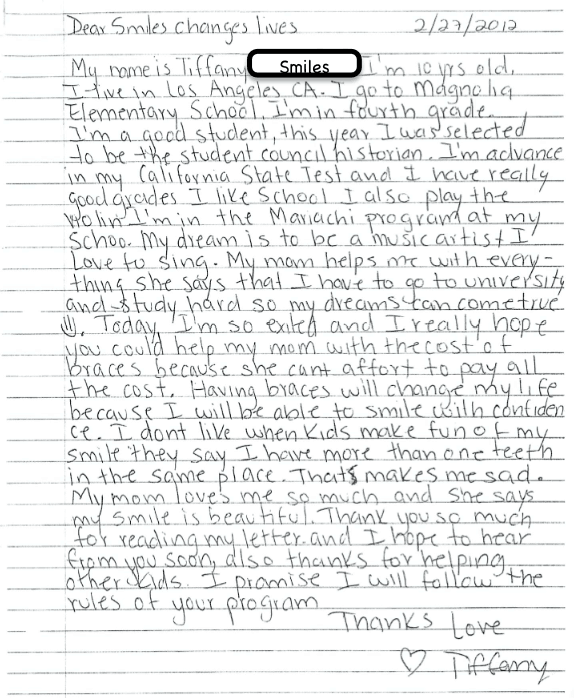 Dear Smiles changes lives 2/27/2012
My name is Tiffany Smiles I'm 10 yrs old.
I live in Los Angeles CA. I go to Magnolia
Elementary School. I'm in fourth grade.
I'm a good student, this year I was selected
to be the student council historian. I'm advance
in my California State Test and I have really
good grades I like School I also play the
violin I'm in the Mariachi program at my
Schoo. My dream is to be a music artist I
Love to sing. My mom helps me with every-
thing she says that I have to go to university
and study hard so my dreams can come true
. Today, I'm so exited and I really hope
you could help my mom with the cost of
braces because she cant affort to pay all
the cost. Having braces will change my life
because I will be able to smile with confiden
ce. I dont like when kids make fun of my
smile they say I have more than one teeth
in the same place. Thats makes me sad.
My mom loves me so much and she says
my smile is beautiful. Thank you so much
for reading my letter. and I hope to hear
from you soon, also thanks for helping
other kids. I promise I will follow the
rules of your program
Thanks Love
♡ Tiffany